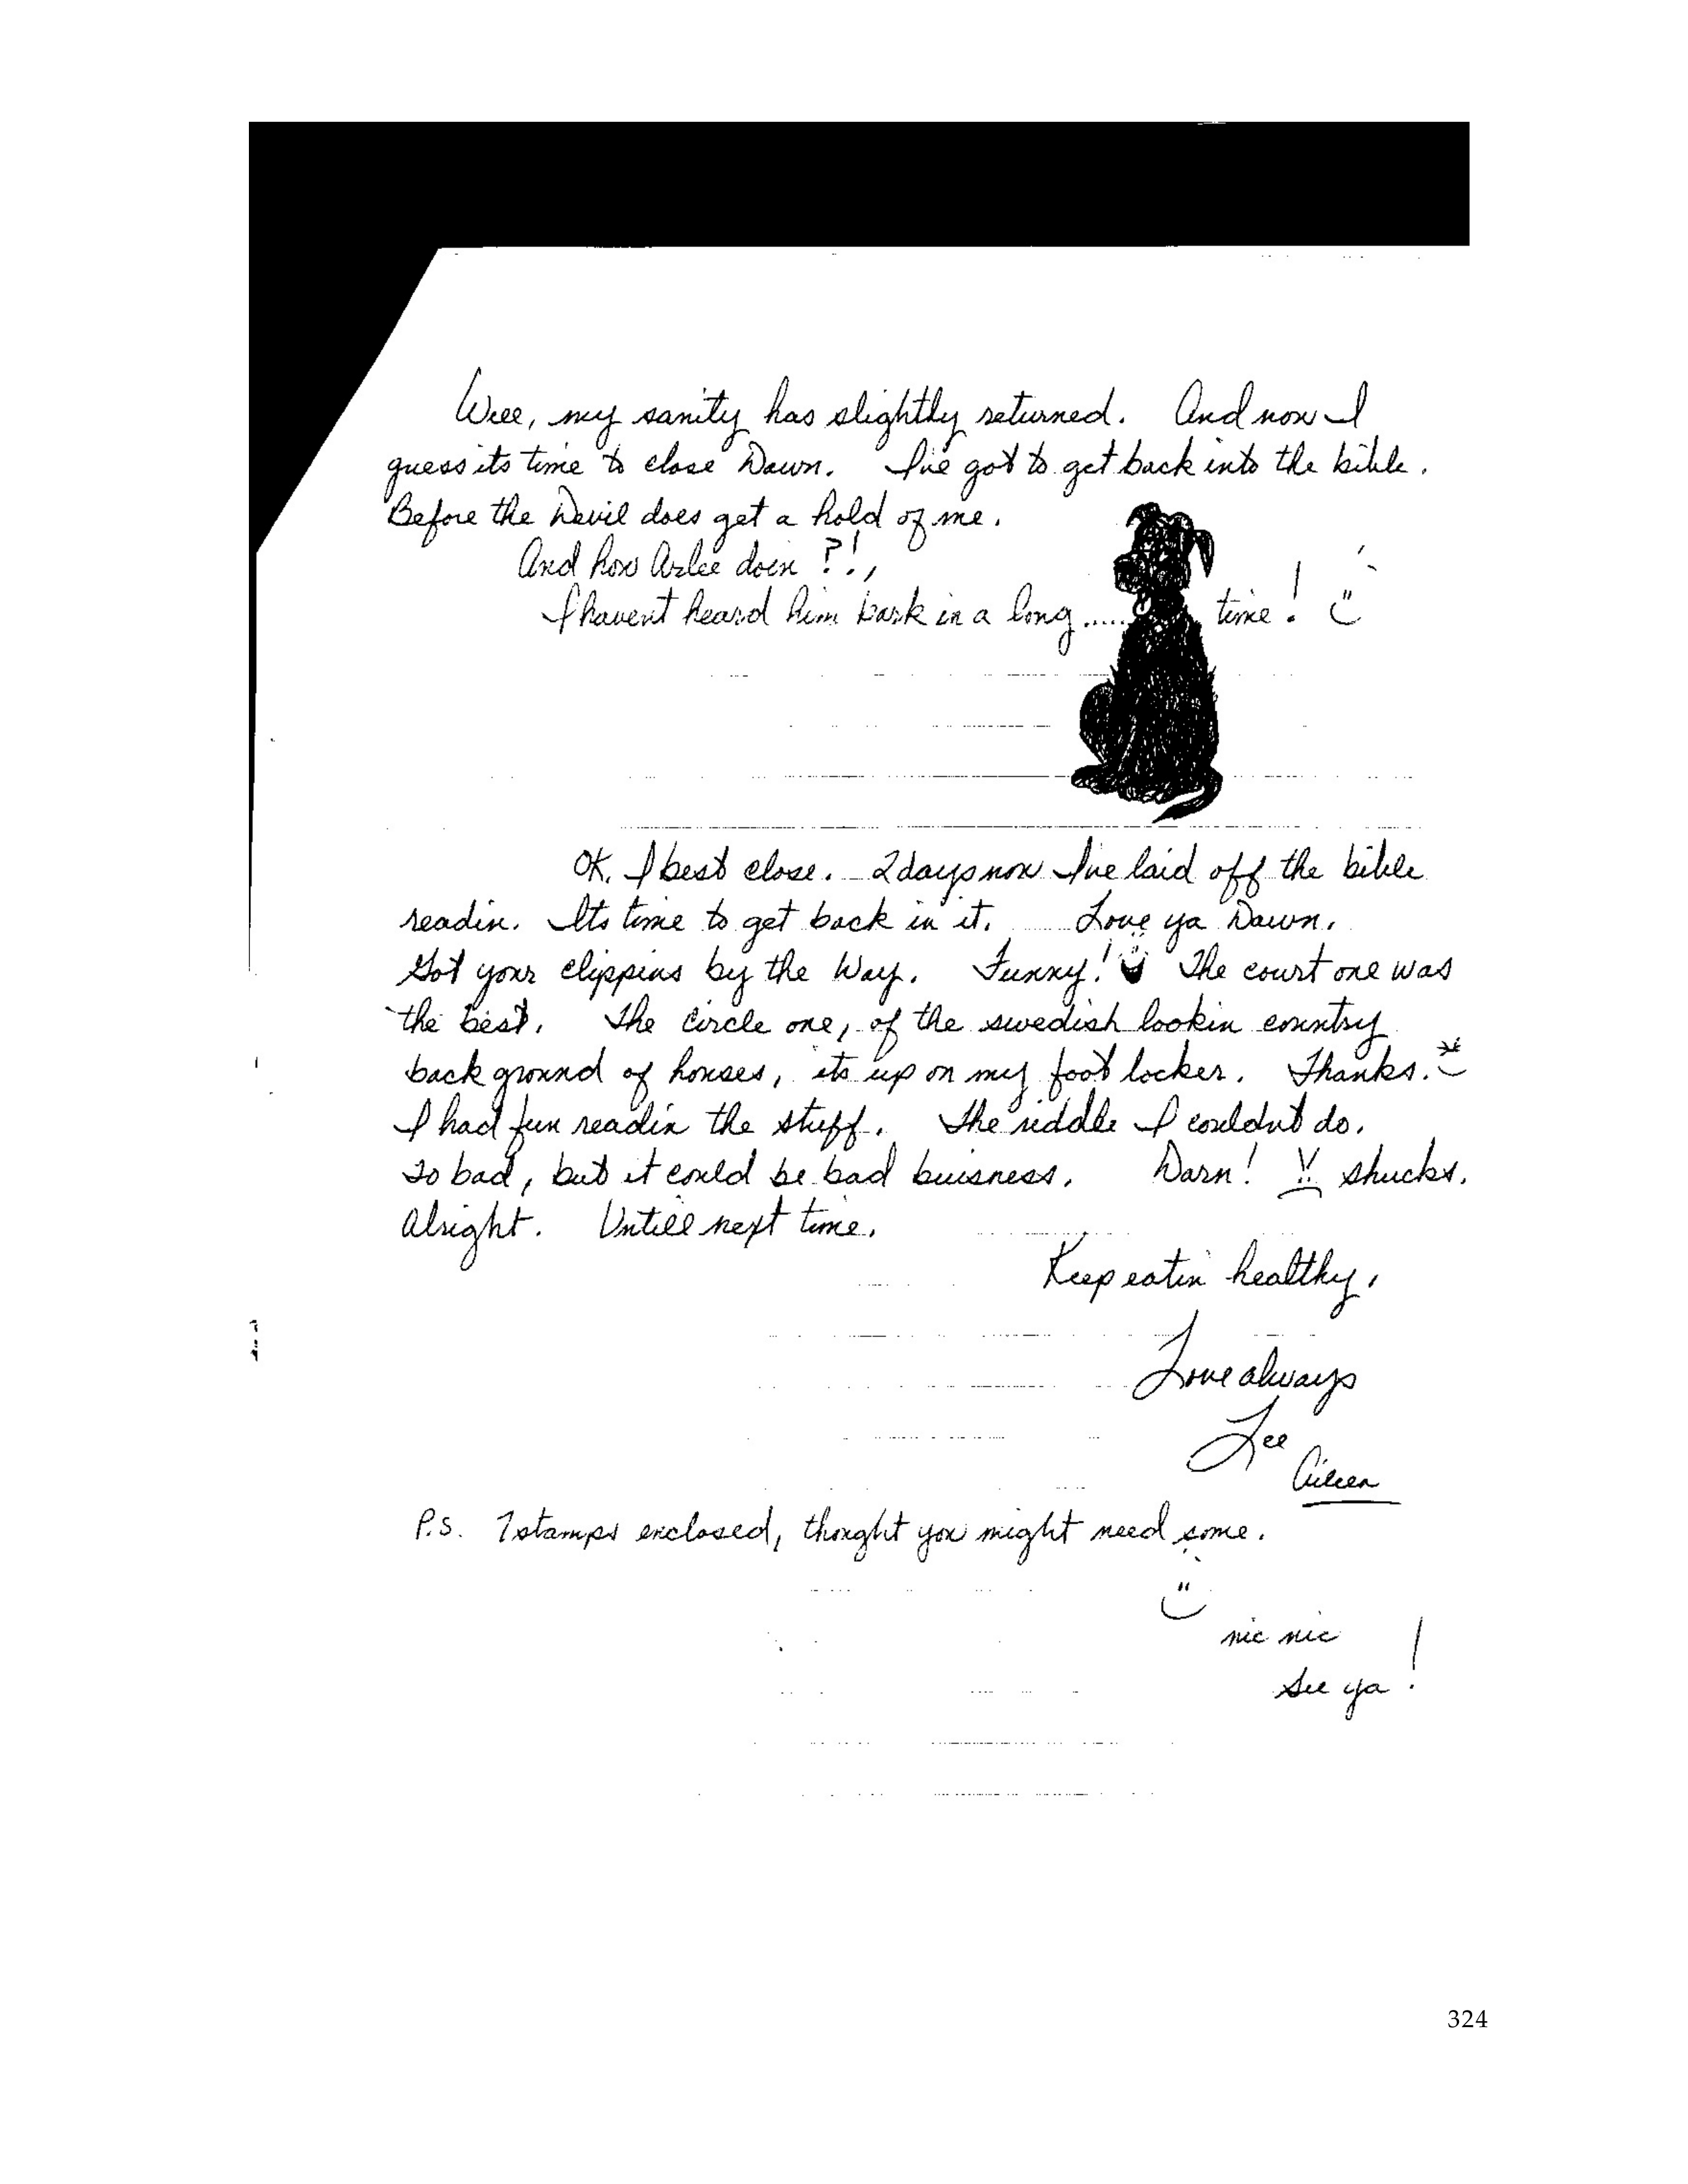 Well, my sanity has slightly returned. And now I
guess its time to close Dawn. I've got to get back into the bible.
Before the Devil does get a hold of me.
And how Arlee doin ?!,
I havent heard him bark in a long...... time!
OK. I best close. 2 days now I've laid off the bible
readin. Its time to get back in it. Love ya Dawn.
Got your clippins by the Way. Funny! The court one was
the best. The circle one, of the swedish lookin country
back ground of houses, its up on my foot locker. Thanks.
I had fun readin the stuff. The riddle I couldnt do.
So bad, but it could be bad buisness. Darn! shucks.
Alright. Untill next time.
Keep eatin healthy,
Love always
Lee
Aileen
P.S. 7 stamps enclosed, thought you might need some.
nic nic
See ya!
324